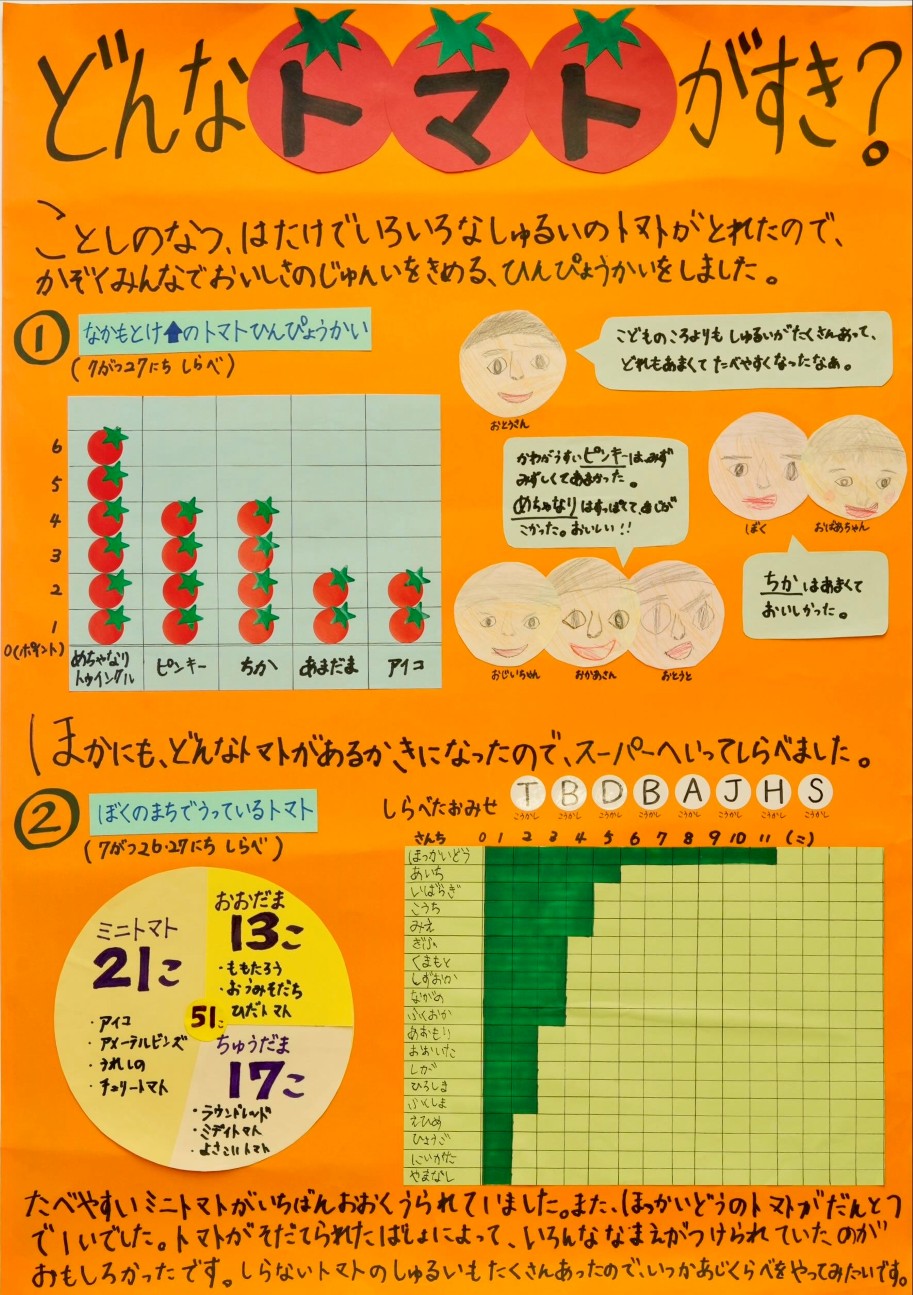 どんなトマトがすき?
ことしのなつ、はたけでいろいろなしゅるいのトマトがとれたので、
かぞくみんなでおいしさのじゅんいをきめる、ひんぴょうかいをしました。
① なかもとけ⬆のトマトひんぴょうかい
(7がつ27にち しらべ)
6
5
4
3
2
1
0(ポイント)
めちゃなり
トゥインクル
ピンキー
ちか
あまだま
アイコ
こどものころよりも しゅるいがたくさんあって、
どれもあまくて たべやすくなったなぁ。
おとうさん
かわがうすいピンキーは、みず
みずしくてあまかった。
めちゃなりはすっぱくて、あじが
こかった。おいしい!!
ぼく
おばあちゃん
ちかはあまくて
おいしかった。
おじいちゃん
おかあさん
おとうと
ほかにも、どんなトマトがあるか きになったので、スーパーへいってしらべました。
② ぼくのまちでうっているトマト
(7がつ26・27にち しらべ)
ミニトマト
21こ
・アイコ
・アメーテルビンズ
・うれしの
・チェリートマト
おおだま
13こ
・ももたろう
・おうみそだち
ひだトマト
51こ
ちゅうだま
17こ
・ラウンドレッド
・ミディトマト
・よさこいトマト
しらべたおみせ T B D B A J H S
さんち 0 1 2 3 4 5 6 7 8 9 10 11 (こ)
ほっかいどう
あいち
いばらぎ
こうち
みえ
ぎふ
くまもと
しずおか
ながの
ふくおか
あおもり
おおいた
しが
ひろしま
ふくしま
えひめ
ひょうご
にいがた
やまなし
たべやすいミニトマトがいちばんおおくうられていました。また、ほっかいどうのトマトがだんとつ
で1いでした。トマトがそだてられたばしょによって、いろんななまえがつけられていたのが
おもしろかったです。しらないトマトのしゅるいもたくさんあったので、いつかあじくらべをやってみたいです。